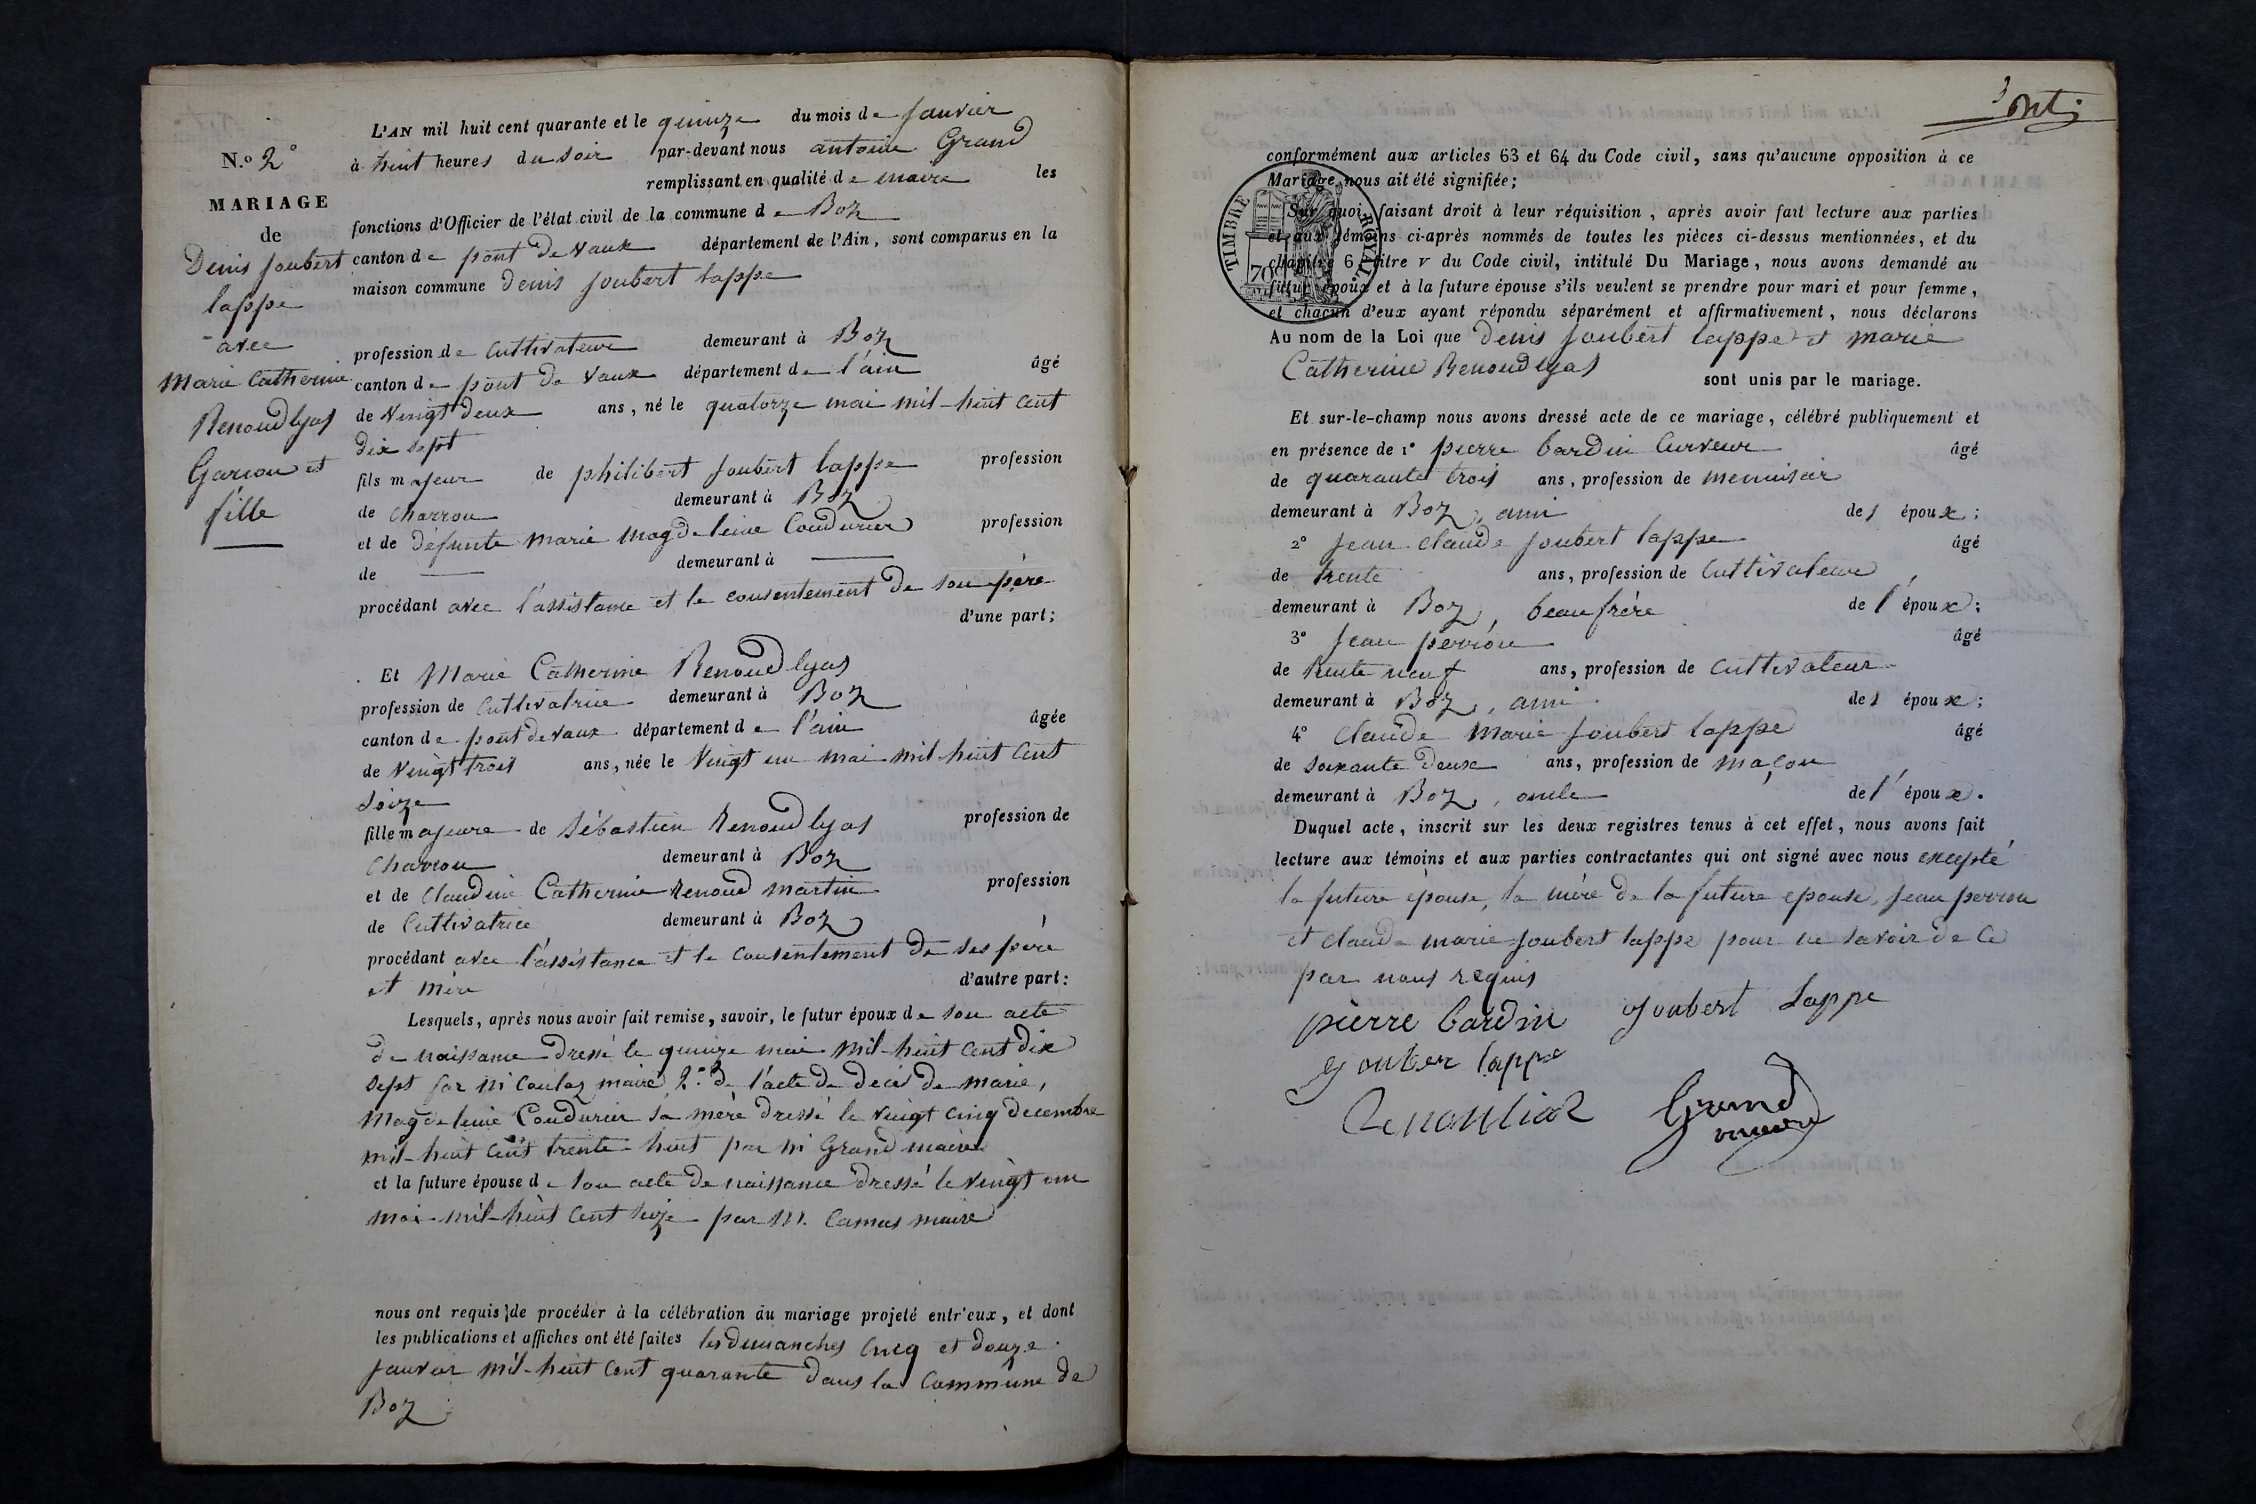 N.º 2º
MARIAGE
de
Denis Joubert
lappe
avec
Marie Catherine
Renoud lyas
Garcon et
fille
L'AN mil huit cent quarante et le quinze du mois de Janvier
à huit heures du soir par-devant nous antoine Grand
remplissant en qualité de maire les
fonctions d'Officier de l'état civil de la commune de Boz
canton de pont de vaux département de l'Ain, sont comparus en la
maison commune Denis Joubert lappe
profession de Cultivateur demeurant à Boz
canton de pont de vaux département de l'ain âgé
de vingt deux ans, né le quatorze mai mil-huit cent
dix sept
fils majeur de philibert Joubert lappe profession
de charron demeurant à Boz
et de défunte marie magdeleine Coudurier profession
de — demeurant à —
procédant avec l'assistance et le consentement de son père
d'une part;
Et Marie Catherine Renoud lyas
profession de Cultivatrice demeurant à Boz
canton de pont de vaux département de l'ain âgée
de vingt trois ans, née le vingt un mai mil-huit cent
seize
fille majeure de Sébastien Renoud lyas profession de
charron demeurant à Boz
et de Claudine Catherine Renoud martin profession
de Cultivatrice demeurant à Boz
procédant avec l'assistance et le consentement de ses père
et mère d'autre part:
Lesquels, après nous avoir fait remise, savoir, le futur époux de son acte
de naissance dressé le quinze mai mil-huit cent dix
sept par mr maire 2.º de l'acte de décès de marie,
magdeleine Coudurier sa mère dressé le vingt cinq decembre
mil-huit cent trente-huit par mr Grand maire
et la future épouse de son acte de naissance dressé le vingt un
mai mil-huit cent seize par M. Camus maire
nous ont requis de procéder à la célébration du mariage projeté entr'eux, et dont
les publications et affiches ont été faites les dimanches cinq et douze
janvier mil-huit cent quarante dans la commune de
Boz
TIMBRE ROYAL
70
conformément aux articles 63 et 64 du Code civil, sans qu'aucune opposition à ce
Mariage nous ait été signifiée;
Sur quoi, faisant droit à leur réquisition, après avoir fait lecture aux parties
et aux témoins ci-après nommés de toutes les pièces ci-dessus mentionnées, et du
chapitre 6, titre V du Code civil, intitulé Du Mariage, nous avons demandé au
futur époux et à la future épouse s'ils veulent se prendre pour mari et pour femme,
et chacun d'eux ayant répondu séparément et affirmativement, nous déclarons
Au nom de la Loi que Denis Joubert lappe et marie
Catherine Renoud lyas sont unis par le mariage.
Et sur-le-champ nous avons dressé acte de ce mariage, célébré publiquement et
en présence de 1º pierre bardin âgé
de quarante trois ans, profession de menuisier
demeurant à Boz, ami des époux;
2º Jean claude Joubert lappe âgé
de trente ans, profession de Cultivateur,
demeurant à Boz, beau frère de l'époux;
3º Jean perron âgé
de trente neuf ans, profession de Cultivateur
demeurant à Boz, ami des époux;
4º Claude Marie Joubert lappe âgé
de soixante deux ans, profession de maçon
demeurant à Boz, oncle de l'époux.
Duquel acte, inscrit sur les deux registres tenus à cet effet, nous avons fait
lecture aux témoins et aux parties contractantes qui ont signé avec nous excepté
la future épouse, la mère de la future epouse, Jean perron
et claude marie Joubert lappe pour ne savoir de ce
par nous requis
pierre bardin Joubert Lappe
Jouber lappe
Renoulias Grand
maire